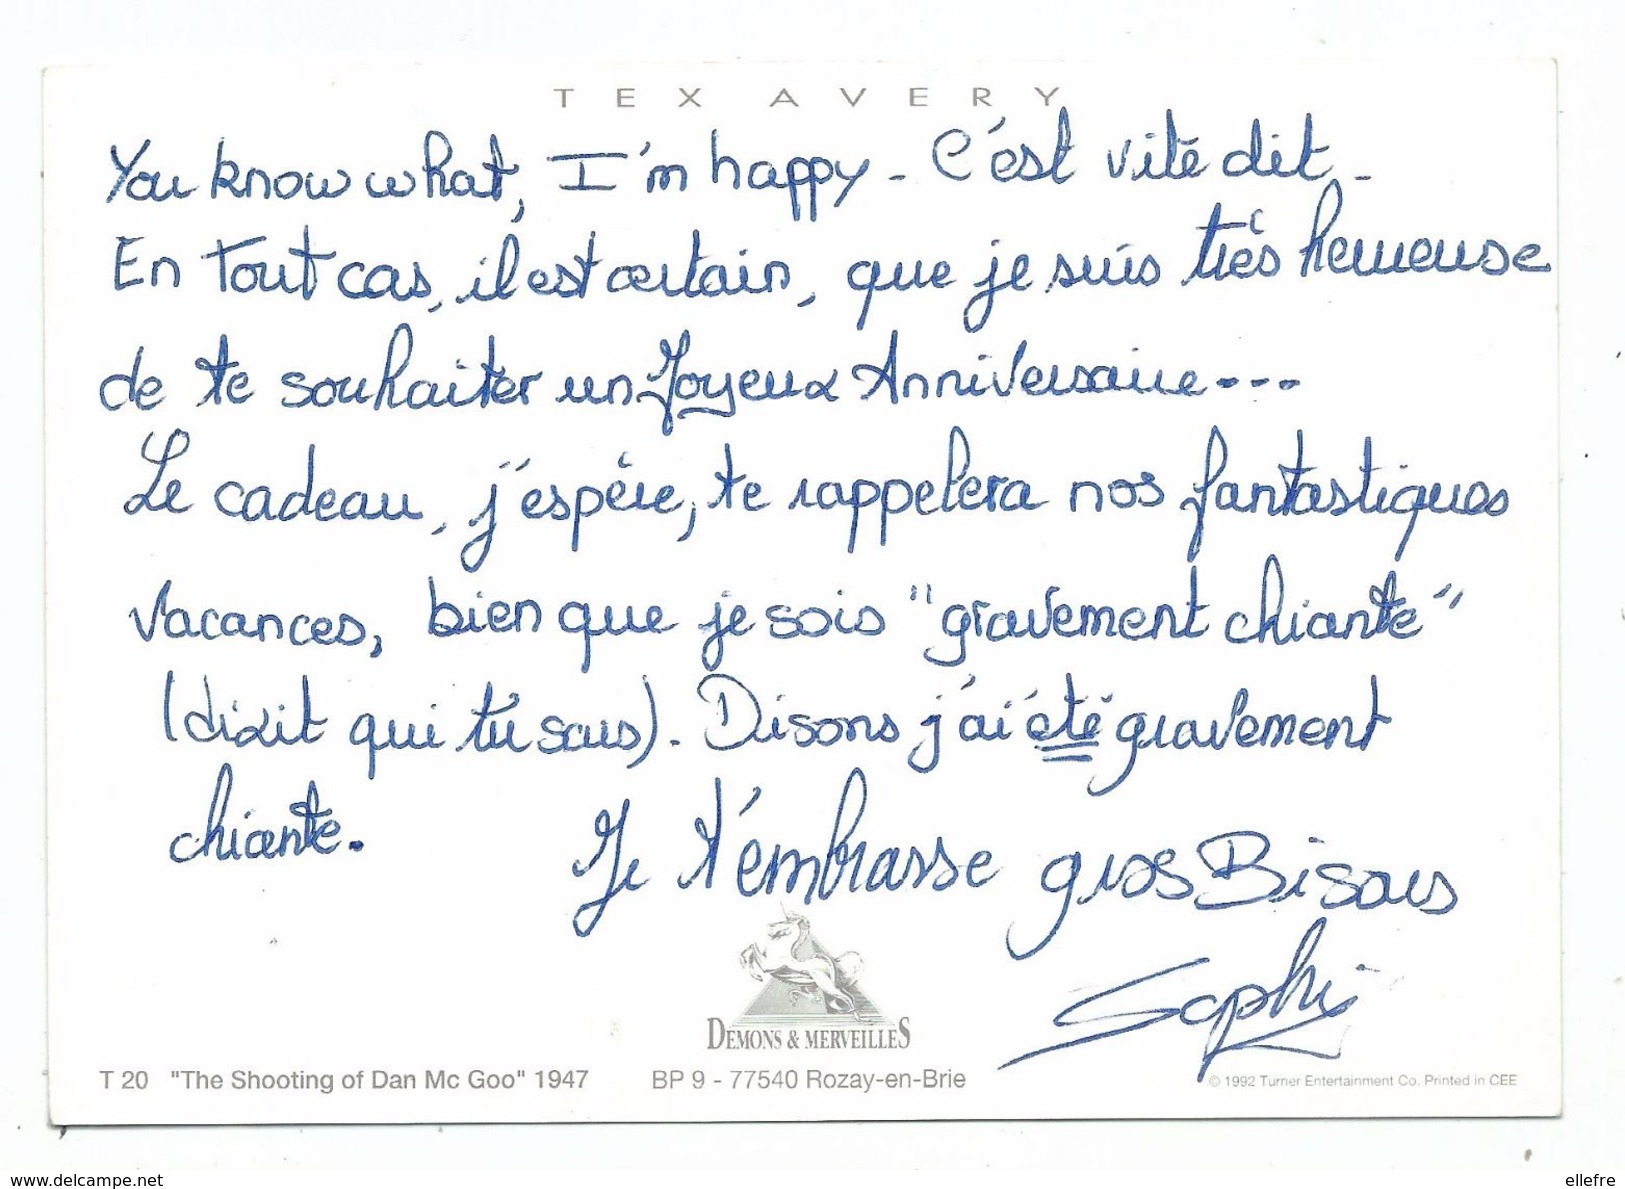 TEX AVERY
You know what, I'm happy - C'est vite dit -
En tout cas, il est certain, que je suis très heureuse
de te souhaiter un Joyeux Anniversaire...
Le cadeau, j'espère, te rappelera nos fantastiques
vacances, bien que je sois "gravement chiante"
(dixit qui tu sais). Disons j'ai été gravement
chiante.
Je t'embrasse gros Bisous
Sophie
DEMONS & MERVEILLES
T 20 "The Shooting of Dan Mc Goo" 1947 BP 9 - 77540 Rozay-en-Brie © 1992 Turner Entertainment Co. Printed in CEE
www.delcampe.net ellefre